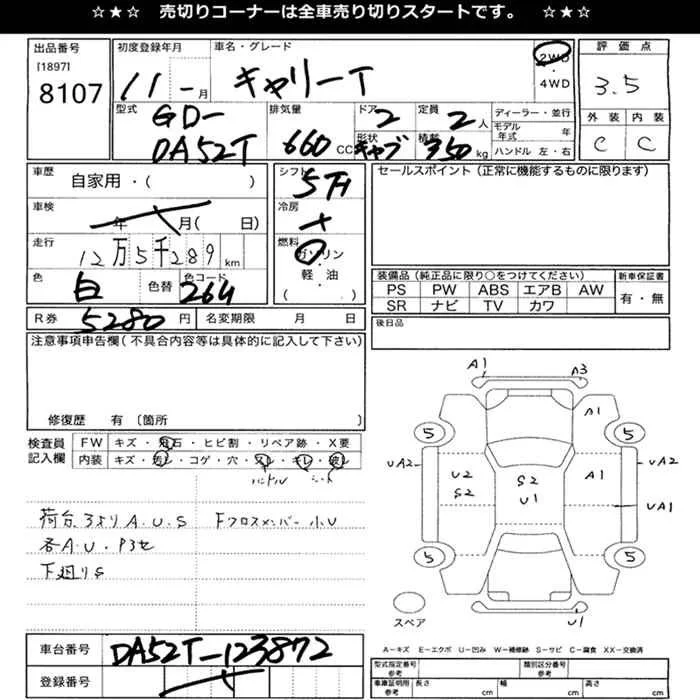 ☆★☆ 売切りコーナーは全車売り切りスタートです。 ☆★☆
出品番号
[1897]
8107
初度登録年月
11 - 月
車名・グレード
キャリーT
2WD
・
4WD
評価点
3.5
外装 内装
C C
型式
GD-
DA52T
排気量
660 CC
ドア
2
形状
キャブ
定員
2 人
積載
350 kg
ディーラー・並行
モデル年式 年
ハンドル 左・右
車歴
自家用・( )
シフト
5MT
車検
年 月( 日)
冷房
走行
12万5千289 km
燃料
ガソリン
・
軽・油
( )
色
白
色替
色コード
26U
R券 5280 円
名変期限 月 日
セールスポイント(正常に機能するものに限ります)
装備品(純正品に限り○をつけてください)
PS PW ABS エアB AW
SR ナビ TV カワ
新車保証書
有・無
後日品
注意事項申告欄(不具合内容等は具体的に記入して下さい)
修復歴 有〔箇所 〕
検査員
記入欄
FW キズ・飛石・ヒビ割・リペア跡・X要
内装 キズ・汚レ・コゲ・穴・スレ・キレ・破レ
ハンドル シート
荷台サビよりA.U.S Fクロスメンバー小U
各A.U.P3セ
下廻りS
A1
A3
A1
5
5
UA2
U2
S2
S2
U1
A1
UA2
UA1
5
5
U1
スペア
A-キズ E-エクボ U-凹み W-補修跡 S-サビ C-腐食 XX-交換済
車台番号
DA52T-123872
登録番号
型式指定番号
参考
類別区分番号
参考
車庫証明用
参考
長さ cm
幅 cm
高さ cm